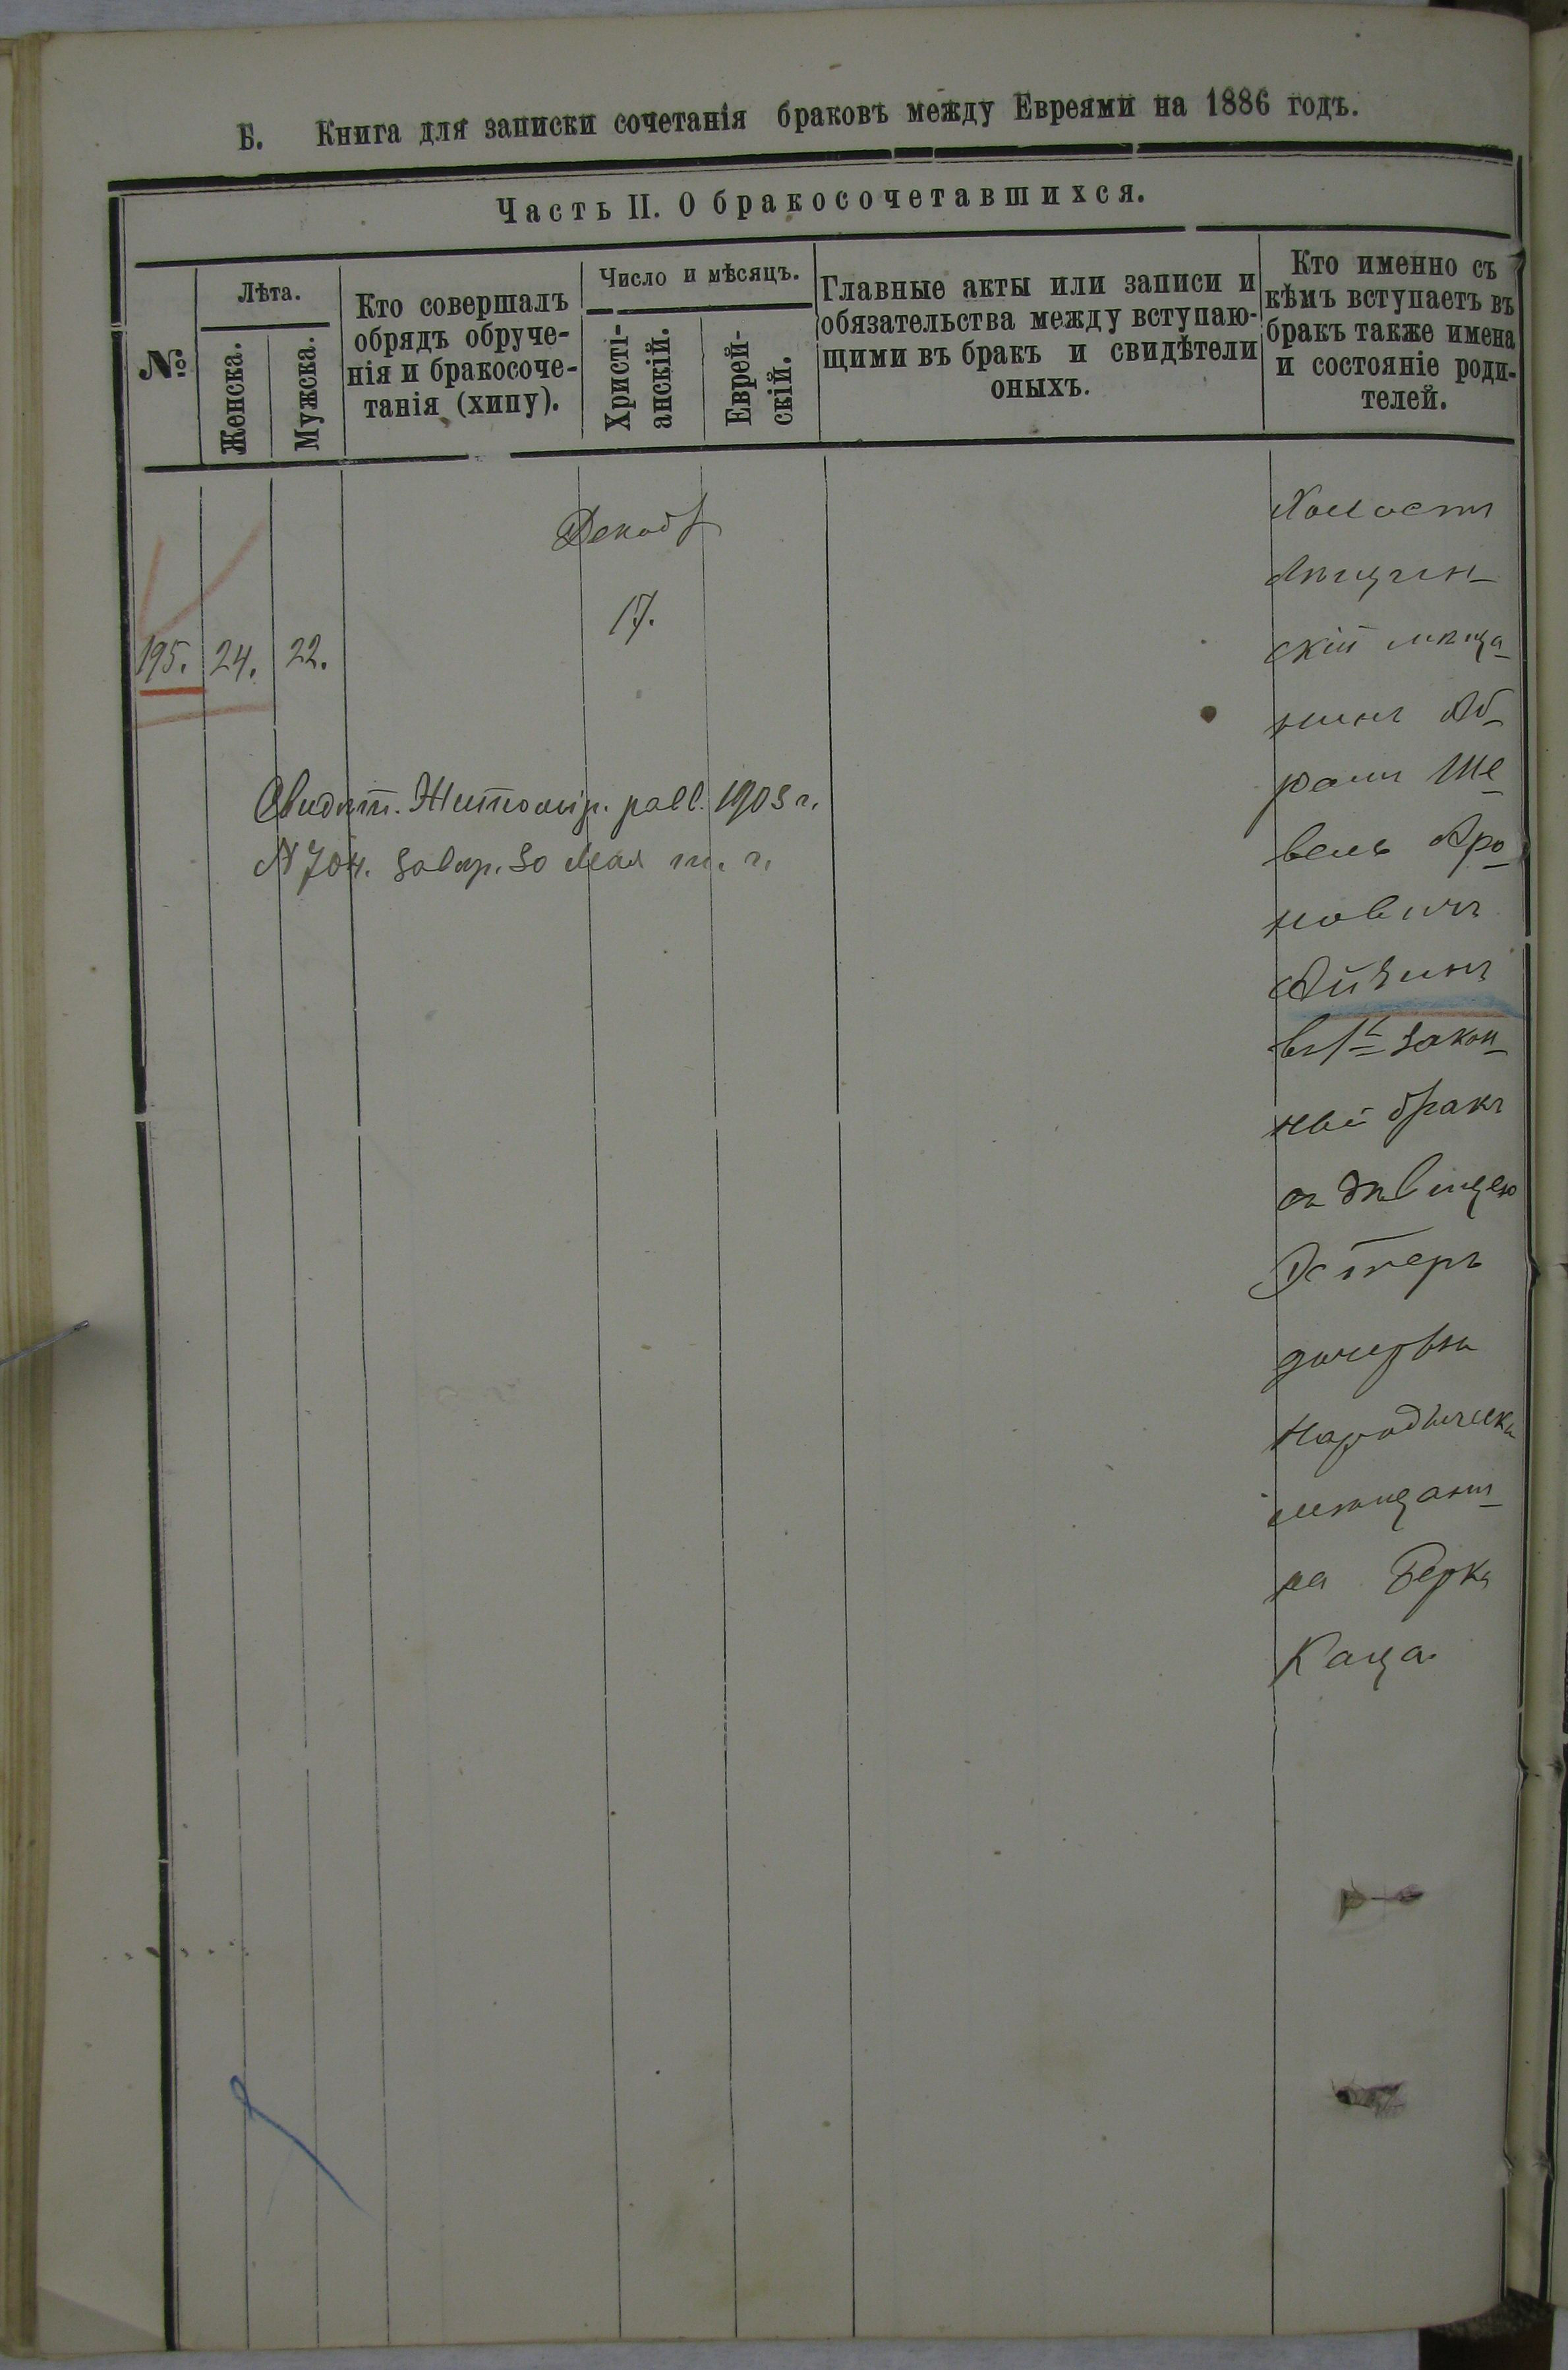 Б. Книга для записки сочетанія браковъ между Евреями на 1886 годъ.
Часть II. О бракосочетавшихся.
№
Лѣта.
Женска.
Мужска.
Кто совершалъ
обрядъ обруче-
нія и бракосоче-
танія (хипу).
Число и мѣсяцъ.
Христі-
анскій.
Еврей-
скій.
Главные акты или записи и
обязательства между вступаю-
щими въ бракъ и свидѣтели
оныхъ.
Кто именно съ
кѣмъ вступаетъ въ
бракъ также имена
и состояніе роди-
телей.
195.
24.
22.
Декаб
17.
Свидѣт. Житомір. равв. 1903 г.
N 704. завѣр. 30 Мая т. г.
Холостъ
скій мѣща-
нинъ Аб-
рамъ Ше-
вель Аро-
новичъ
Айзинъ
въ 1й закон-
ный бракъ
съ дѣвицею
Эстеръ
дочерью
Народическа
мѣщани-
на Берка
Каца